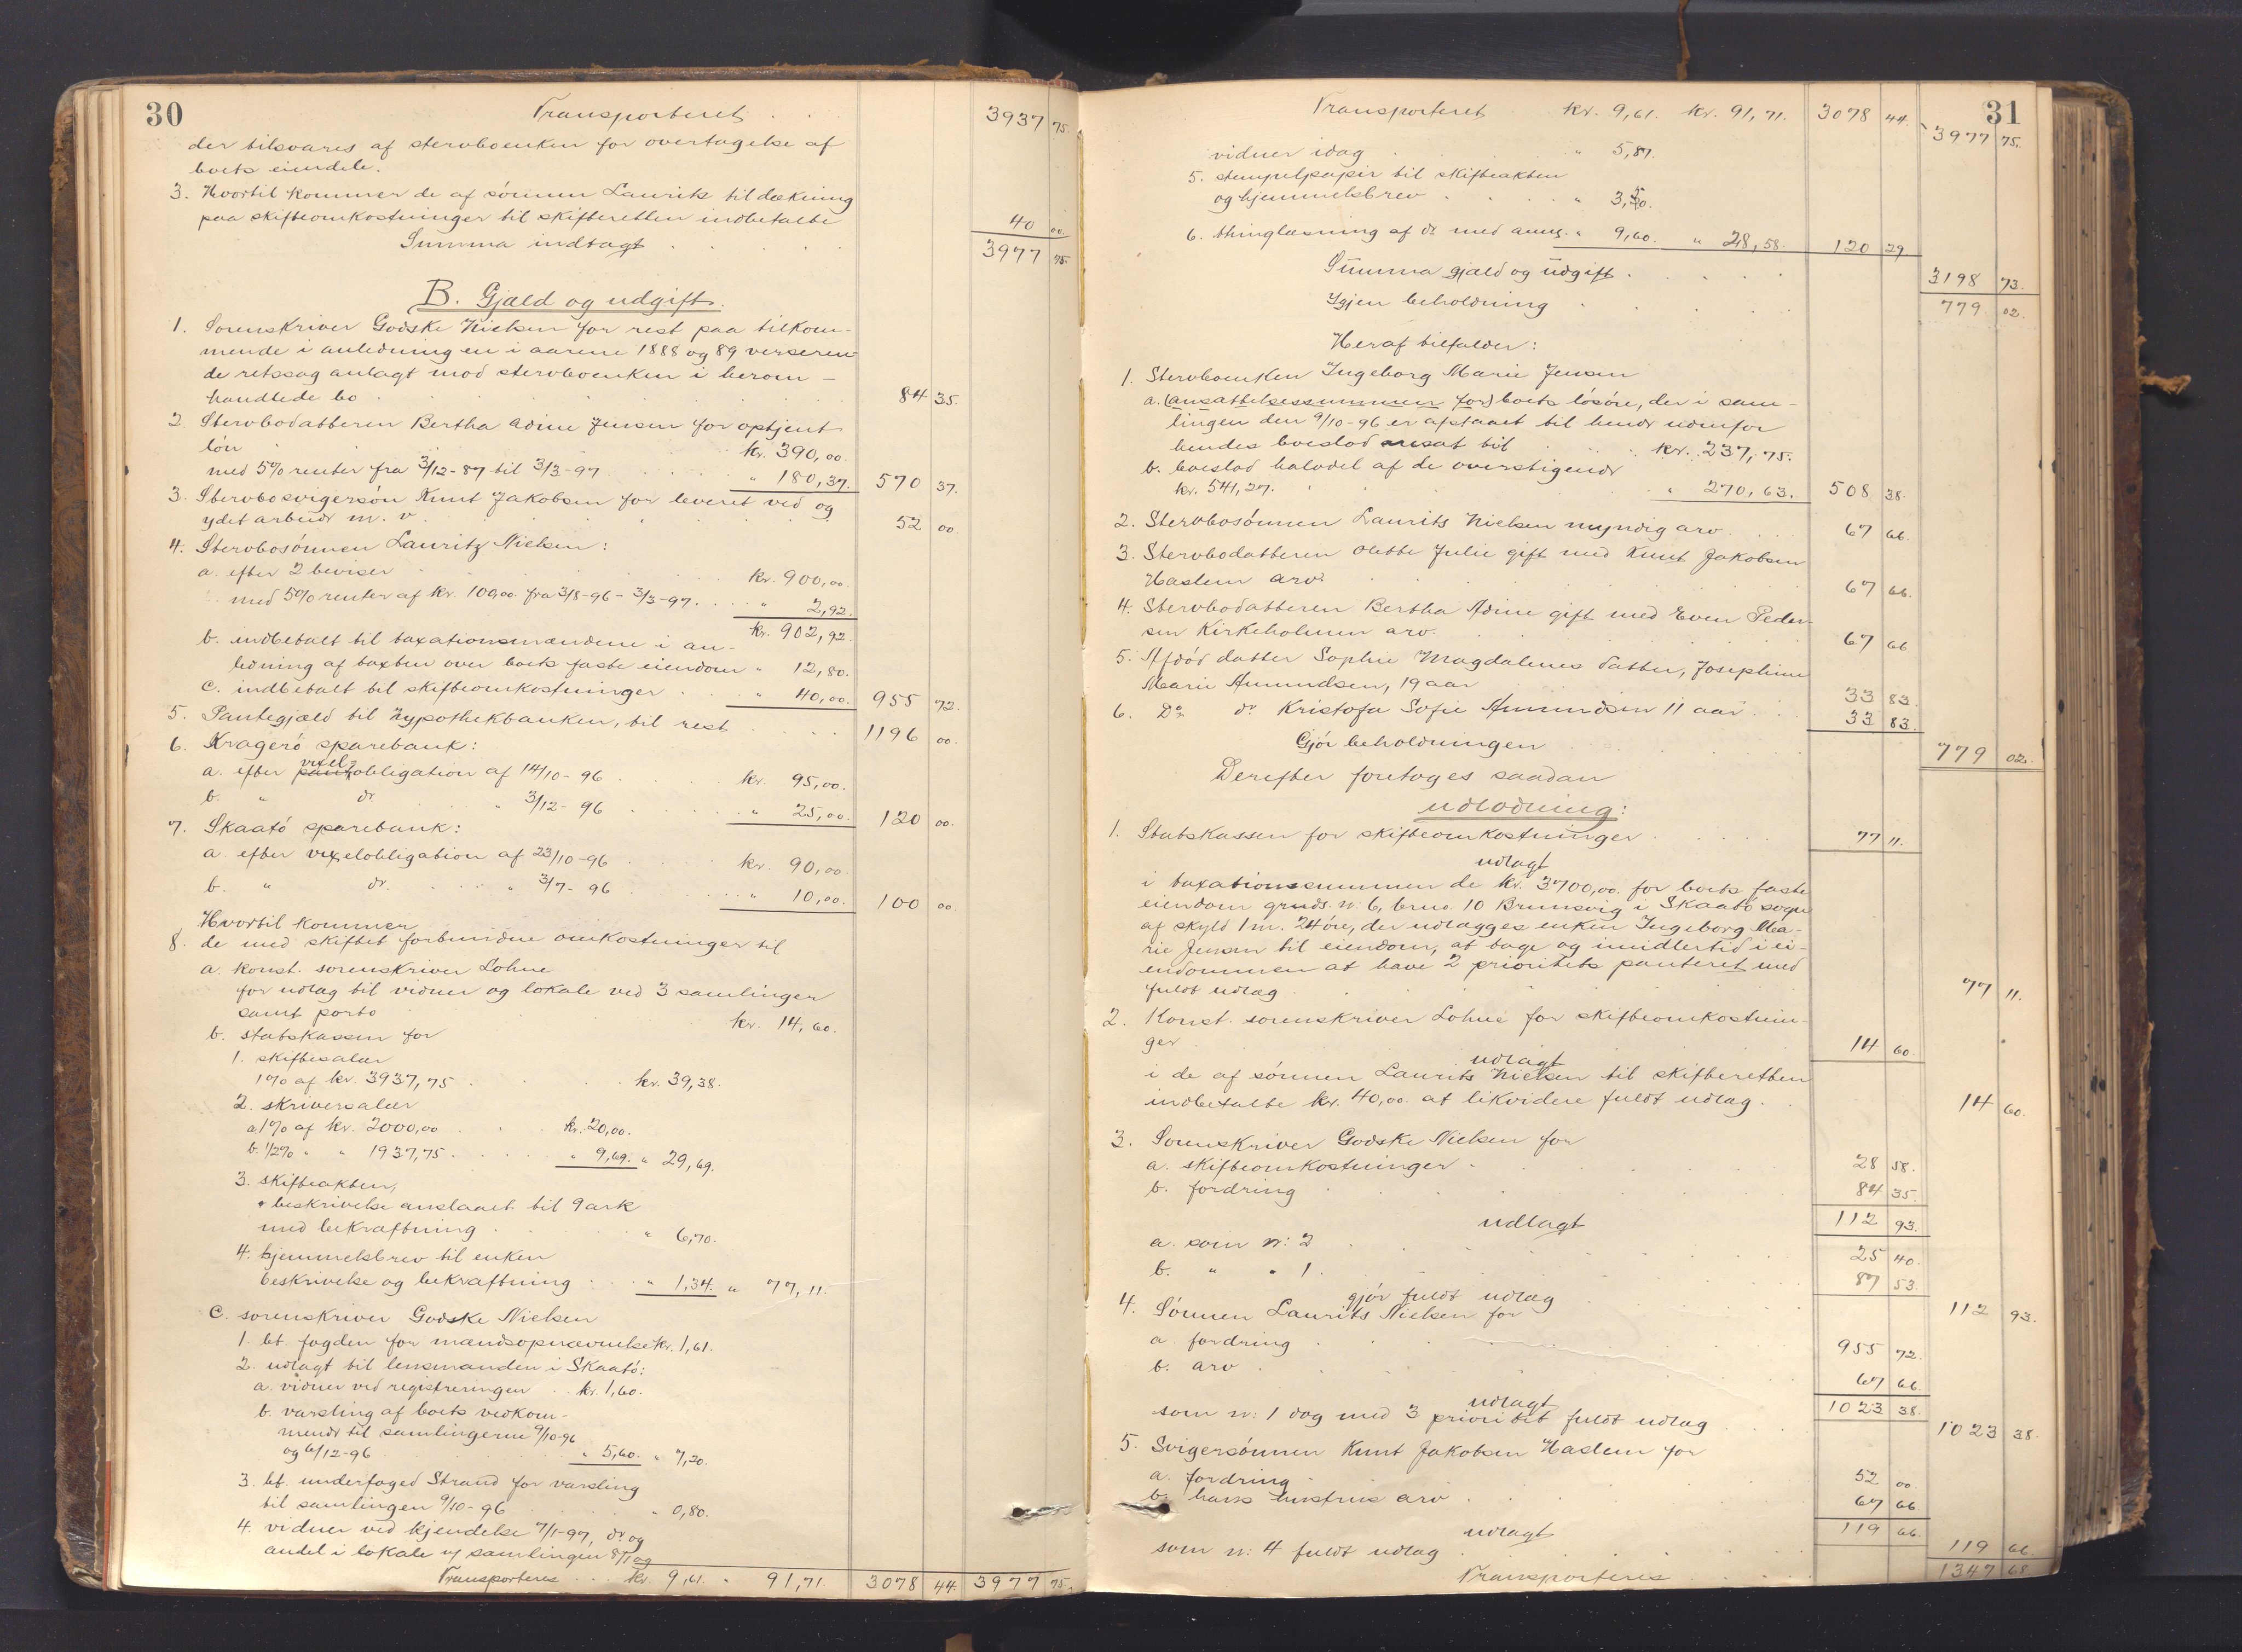 30
Transporteret . . 3937 75.
der tilsvares af stervboenken for overtagelse af
boets eiendele.
3. Hvortil kommer de af sönnen Laurits til dækning
paa skifteomkostninger til skifteretten indbetalte 40 00.
Summa indtagt . . . . 3977 75.
B. Gjæld og udgift.
1. Sorenskriver Godske Nielsen for rest paa tilkom-
mende i anledningen i aarene 1888 og 89 verseren
de retssag anlagt mod stervboenken i herom-
handlede bo . . . . 84 35.
2. Stervbodatteren Bertha Adine Jensen for optjent
lön . . . kr. 390,00.
med 5% renter fra 3/12-87 til 3/3-97 . . . " 180,37. 570 37.
3. Stervbosvigersön Knut Jakobsen for leveret ved og
ydet arbeide m. v. . . . 52 00
4. Stervbosönnen Lauritz Nielsen:
a. efter 2 beviser . . . kr. 900,00.
med 5% renter af kr. 100,00. fra 3/8-96 - 3/3-97 . . . " 2,92.
kr. 902,92.
b. indbetalt til taxationsmændene i an-
ledning af taxten over boets faste eiendom " 12,80.
c. indbetalt til skifteomkostninger . . " 40,00. 955 72.
5. Pantegjæld til Hypothekbanken, til rest . . . 1196 00.
6. Kragerö sparebank:
a. efter pant vexelobligation af 14/10-96 . . . kr. 95,00.
b. " do. . . " 3/12-96 . . . " 25,00. 120 00.
7. Skaatö sparebank:
a. efter vexelobligation af 23/10-96 . . . kr. 90,00.
b. " do. . . " 3/7-96 . . . " 10,00. 100 00.
Hvortil kommer
8. de med skiftet forbundne omkostninger til
a. konst. sorenskriver Lohne
for udlæg til vidner og lokale ved 3 samlinger
samt porto . . . kr. 14,60.
b. statskassen for
1. skiftesalær
1% af kr. 3937,75 . . . kr. 39,38.
2. skriversalær
a. 1% af kr. 2000,00 . . . kr. 20,00.
b. 1/2% " " 1937,75 . . . " 9,69. " 29,69.
3. skifteakten,
beskrivelse anslaaet til 9 ark
med bekræftning . . " 6,70.
4. hjemmelsbrev til enken
beskrivelse og bekræftning . . " 1,34. " 77,11.
c. sorenskriver Godske Nielsen
1. bt. fogden for mandsopnævnelse kr. 1,61.
2. udlagt til lensmanden i Skaatö:
a. vidner ved registreringen . . kr. 1,60.
b. varsling af boets vedkom-
mende til samlingerne 9/10-96
og 6/12-96 . . . " 5,60. " 7,20.
3. bt. underfoged Strand for varsling
til samlingen 9/10-96 . . . " 0,80.
4. vidner ved kjendelse 7/1-97, do. og
andel i lokale v/ samlingen 8/1 og
Transporteres . . . kr. 9,61. " 91,71. 3078 44. 3977 75.
31
Transporteret kr. 9,61. kr. 91,71. 3078 44. 3977 75.
vidner idag . . . " 5,87.
5. stempelpapir til skifteakten
og hjemmelsbrev . . . " 3,50.
6. thinglæsning af do. med anm. " 9,60. " 28,58. 120 29
Summa gjæld og udgift . . . 3198 73.
Igjen beholdning . . . 779 02.
Heraf tilfalder:
1. Stervboenken Ingeborg Marie Jensen
a. (ansættelsessummen for) boets lösöre, der i sam-
lingen den 9/10-96 er afstaaet til hende udenfor
hendes boeslod ansat til . . kr. 237,75.
b. boeslod halvdel af de overstigende
kr. 541,27. . . . " 270,63. 508 38.
2. Stervbosönnen Laurits Nielsen myndig arv . . . 67 66.
3. Stervbodatteren Olette Julie gift med Knut Jakobsen
Haslem arv . . . 67 66.
4. Stervbodatteren Bertha Adine gift med Even Peder-
sen Kirkeholmen arv. . . . 67 66
5. Afdöd datter Sophie Magdalenes datter, Josephine
Marie Amundsen, 19 aar . . . 33 83.
6. Do. do. Kristofa Sofie Amundsen 11 aar . . . 33 83.
Gjör beholdningen . . . 779 02.
Derefter foretoges saadan
udlodning:
1. Statskassen for skifteomkostninger . . . 77 11.
udlagt
i taxationssummen de kr. 3700,00. for boets faste
eiendom grds. n: 6, brno. 10 Brunsvig i Skaatö sogn
af skyld 1 m. 24 öre, der udlægges enken Ingeborg Ma-
rie Jensen til eiendom, at tage og imidlertid i ei-
endommen at have 2 prioritets panteret med
fuldt udlæg . . . 77 11.
2. Konst. sorenskriver Lohne for skifteomkostnin-
ger . . . 14 60.
udlagt
i de af sönnen Laurits Nielsen til skifteretten
indbetalte kr. 40,00. at likvidere fuldt udlæg . . 14 60.
3. Sorenskriver Godske Nielsen for
a. skifteomkostninger . . . 28 58.
b. fordring . . . 84 35.
112 93.
udlagt
a. som n: 2 . . . 25 40.
b. " " 1 . . . 87 53.
gjör fuldt udlæg . . . 112 93.
4. Sönnen Laurits Nielsen for
a. fordring . . . 955 72.
b. arv . . . 67 66.
1023 38.
udlagt
som n: 1 dog med 3 prioritet fuldt udlæg . . 1023 38.
5. Svigersönnen Knut Jakobsen Haslem for
a. fordring . . . 52 00.
b. hans hustrus arv . . . 67 66
119 66.
udlagt
som n: 4 fuldt udlæg . . . 119 66.
Transporteres . . . 1347 68